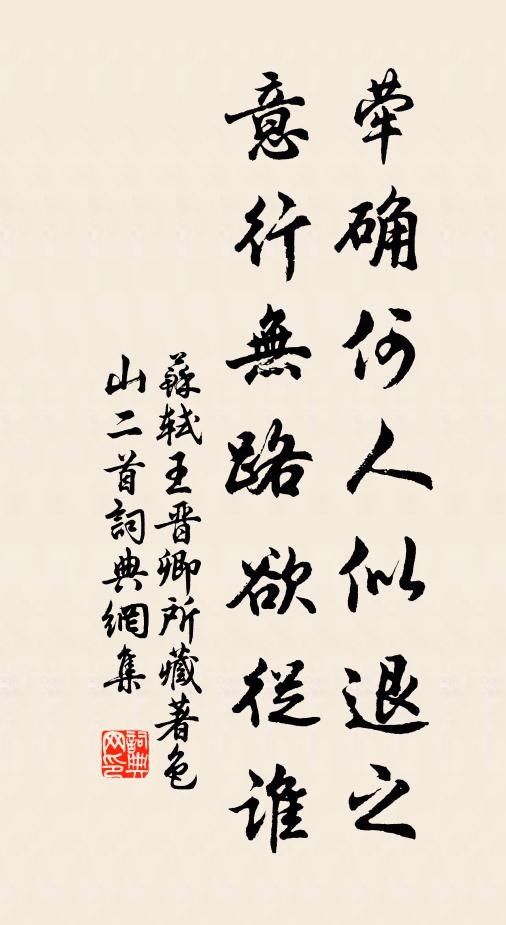 荦确何人似退之
意行無路欲從誰
蘇轼王晋卿所藏著色
山二首詞典網集
詞典
网印